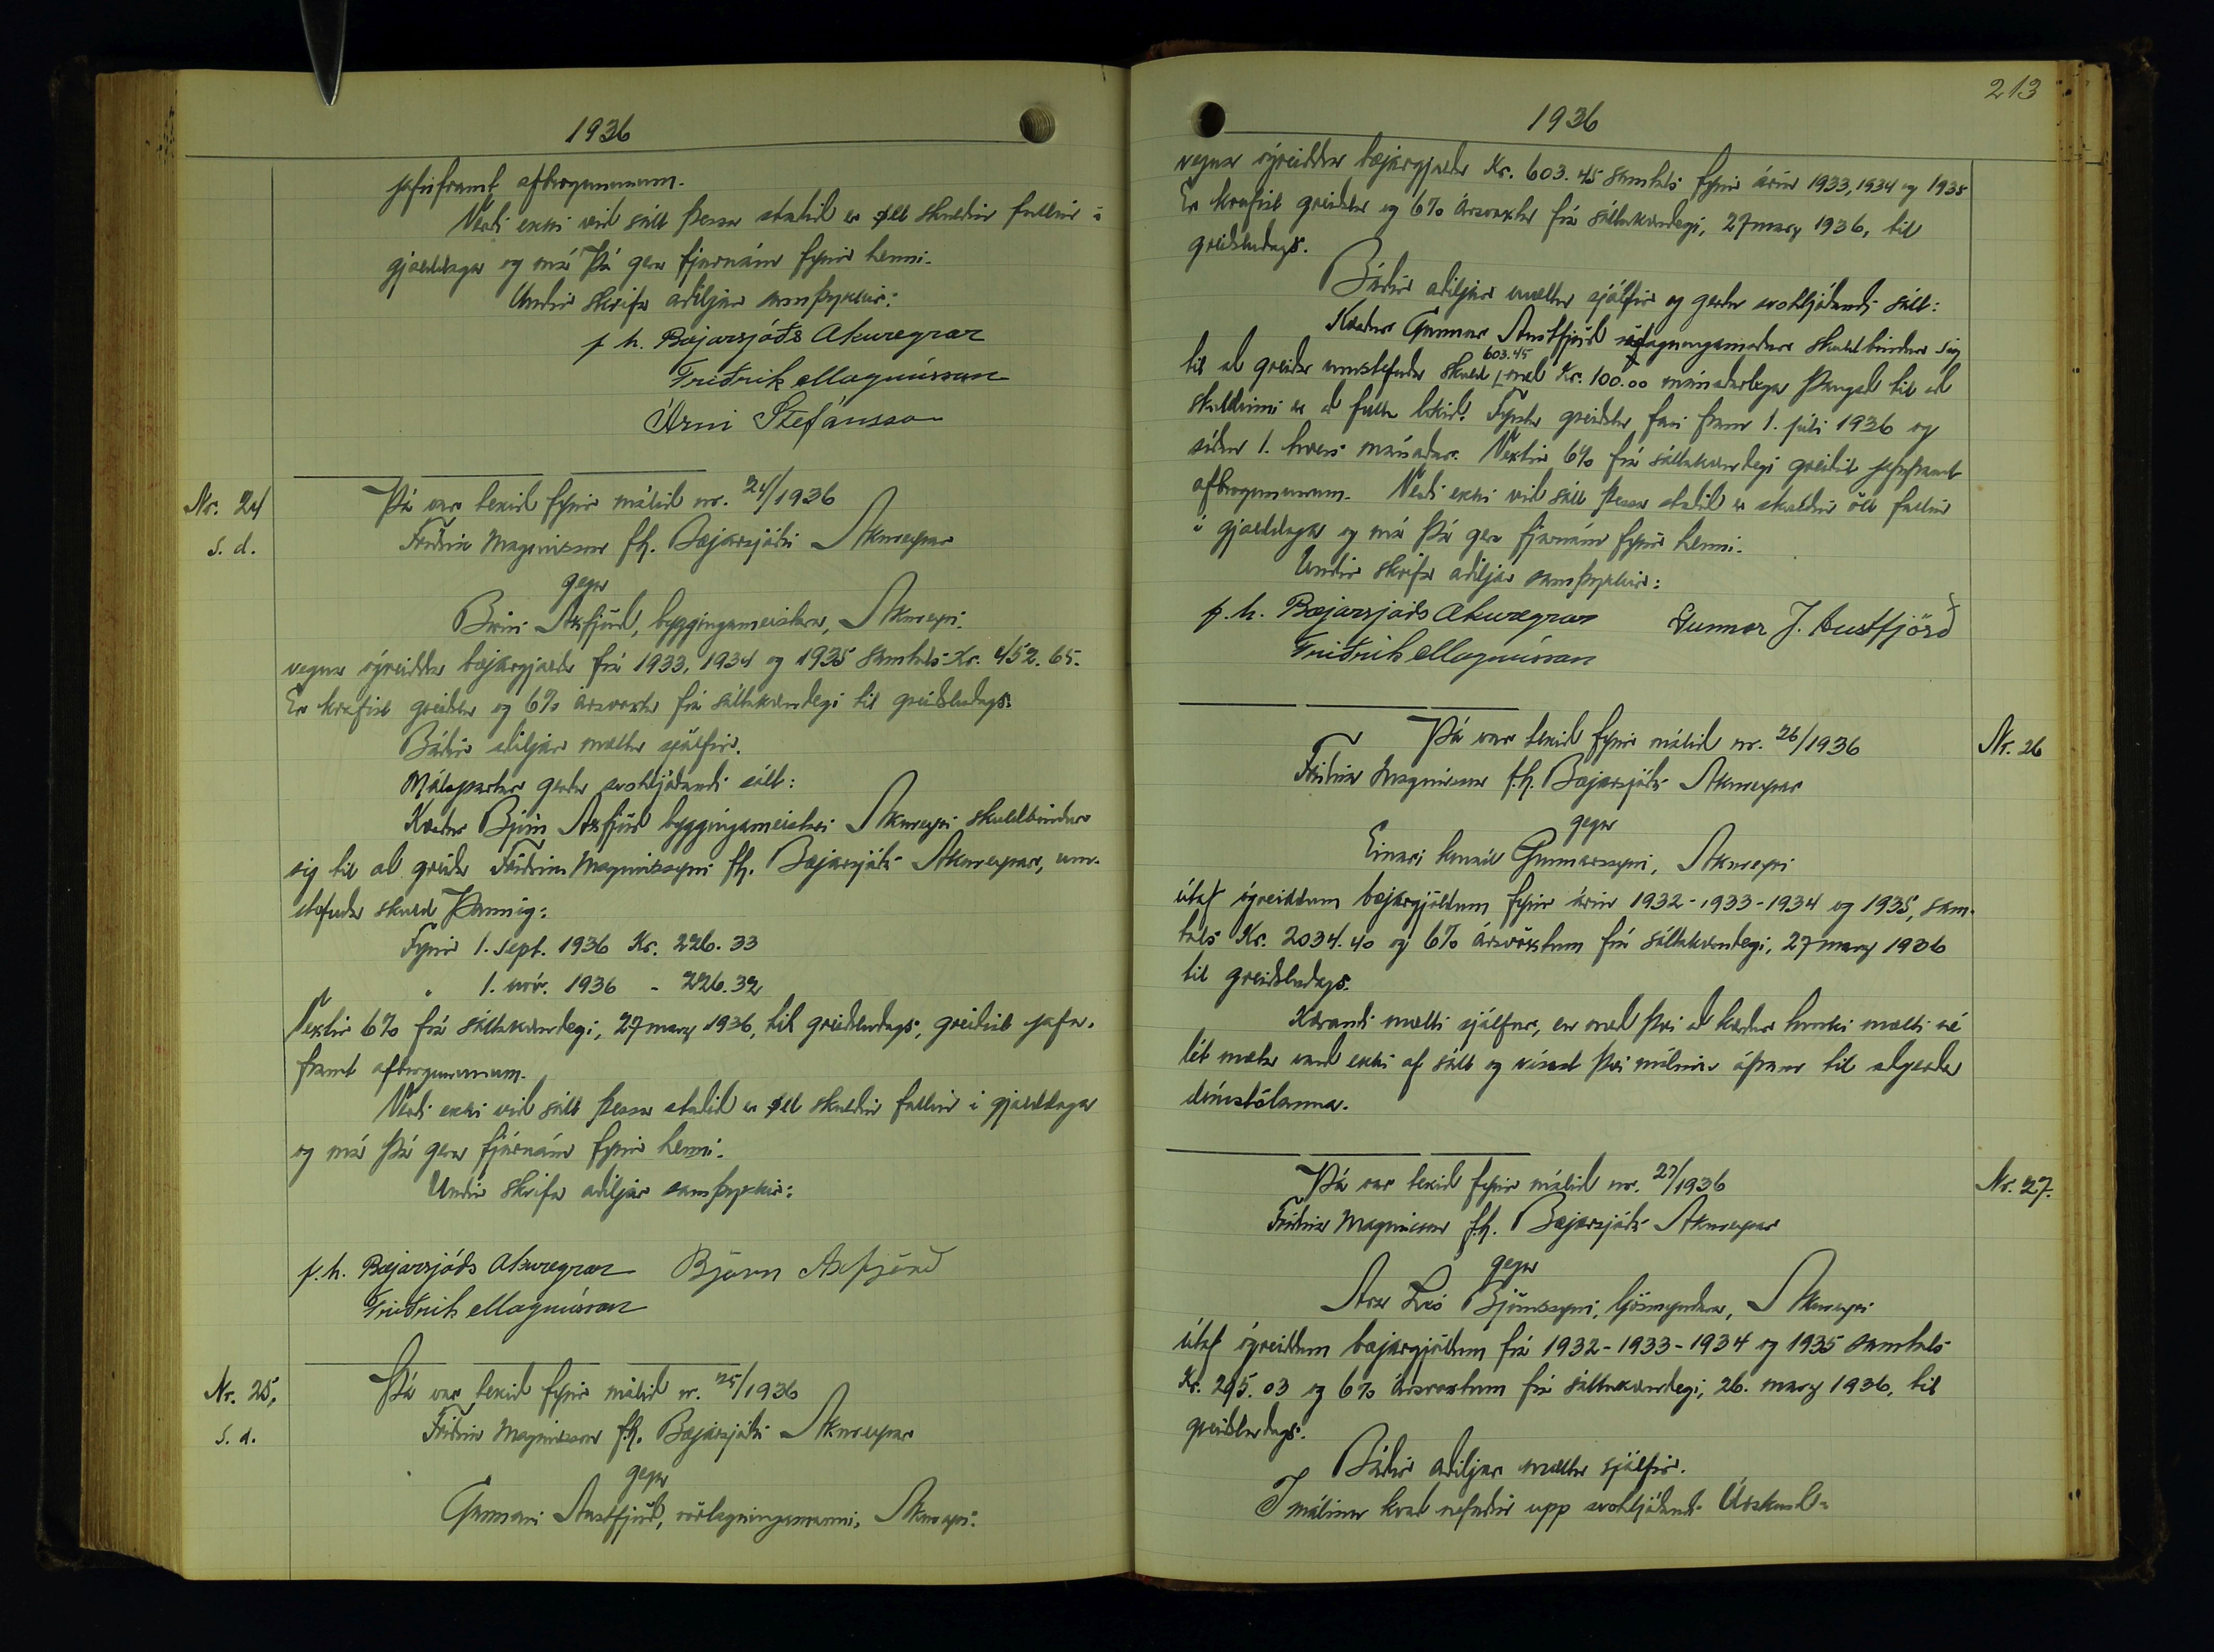 1936
jafnframt afborgununum.
Verði ekki við sátt þessa staðið er öll skuldin fallin í
gjalddaga og má þá gera fjárnám fyrir henni.
Undir skrifa aðiljar samþykkir:
f. h. Bæjarsjóðs Akureyrar
Friðrik Magnússon
Árni Stefánsson
Nr. 24
s. d.
Þá var tekið fyrir málið nr. 24/1936
Friðrik Magnússon fh. Bæjarsjóðs Akureyrar
gegn
Birni Axfjörð, byggingameistara, Akureyri.
vegna ógreiddra bæjargjalda frá 1933, 1934 og 1935 samtals Kr. 452.65.
Er krafist greiðslu og 6% ársvaxta frá sáttakærudegi til greiðsludags.
Báðir aðiljar mættu sjálfir.
Málspartar gerðu svohljóðandi sátt:
Kærður Björn Axfjörð byggingameistari Akureyri skuldbindur
sig til að greiða Friðrik Magnússyni fh. Bæjarsjóðs Akureyrar, um-
stefnda skuld þannig:
Fyrir 1. sept. 1936 Kr. 226.33
" 1. nóv. 1936 - 226.32
Vextir 6% frá sáttakærudegi, 27 marz 1936, til greiðsludags, greiðist jafn-
framt afborgununum.
Verði ekki við sátt þessa staðið er öll skuldin fallin í gjalddaga
og má þá gera fjárnám fyrir henni.
Undir skrifa aðiljar samþykkir:
f. h. Bæjarsjóðs Akureyrar Björn Axfjörð
Friðrik Magnússon
Nr. 25,
s. d.
Þá var tekið fyrir málið nr. 25/1936
Friðrik Magnússon f.h. Bæjarsjóðs Akureyrar
gegn
Gunnari Austfjörð, rörlagningamanni, Akureyri.
213
1936
vegna ógreiddra bæjargjalda Kr. 603.45 samtals fyrir árin 1933, 1934 og 1935
Er krafist greiðslu og 6% ársvaxta frá sáttakærudegi, 27 marz 1936, til
greiðsludags.
Báðir aðiljar mættu sjálfir og gerðu svohljóðandi sátt:
Kærður Gunnar Austfjörð rörlagningamaður skuldbindur sig
til að greiða umstefnda skuld 603.45 með Kr. 100.00 mánaðarlega þangað til að
skuldinni er að fullu lokið. Fyrsta greiðsla fari fram 1. júlí 1936 og
síðan 1. hvers mánaðar. Vextir 6% frá sáttakærudegi greiðist jafnframt
afborgununum. Verði ekki við sátt þessa staðið er skuldin öll fallin
í gjalddaga og má þá gera fjárnám fyrir henni.
Undir skrifa aðiljar samþykkir:
f. h. Bæjarsjóðs Akureyrar Gunnar J. Austfjörð
Friðrik Magnússon
Nr. 26
Þá var tekið fyrir málið nr. 26/1936
Friðrik Magnússon f.h. Bæjarsjóðs Akureyrar
gegn
Einari Gunnarssyni, Akureyri
útaf ógreiddum bæjargjöldum fyrir árin 1932-1933-1934 og 1935, sam-
tals Kr. 2034.40 og 6% ársvöxtum frá sáttakærudegi, 27 marz 1936
til greiðsludags.
Kærandi mætti sjálfur, en með því að kærður hvorki mætti né
lét mæta varð ekki af sátt og vísast því málinu áfram til aðgerða
dómstólanna.
Nr. 27.
Þá var tekið fyrir málið nr. 27/1936
Friðrik Magnússon f.h. Bæjarsjóðs Akureyrar
gegn
Björnssyni, ljósmyndara, Akureyri
útaf ógreiddum bæjargjöldum frá 1932-1933-1934 og 1935 samtals
Kr. 295.03 og 6% ársvöxtum frá sáttakærudegi, 26. marz 1936, til
greiðsludags.
Báðir aðiljar mættu sjálfir.
Í málinu kvað nefndin upp svohljóðandi Úrskurð: